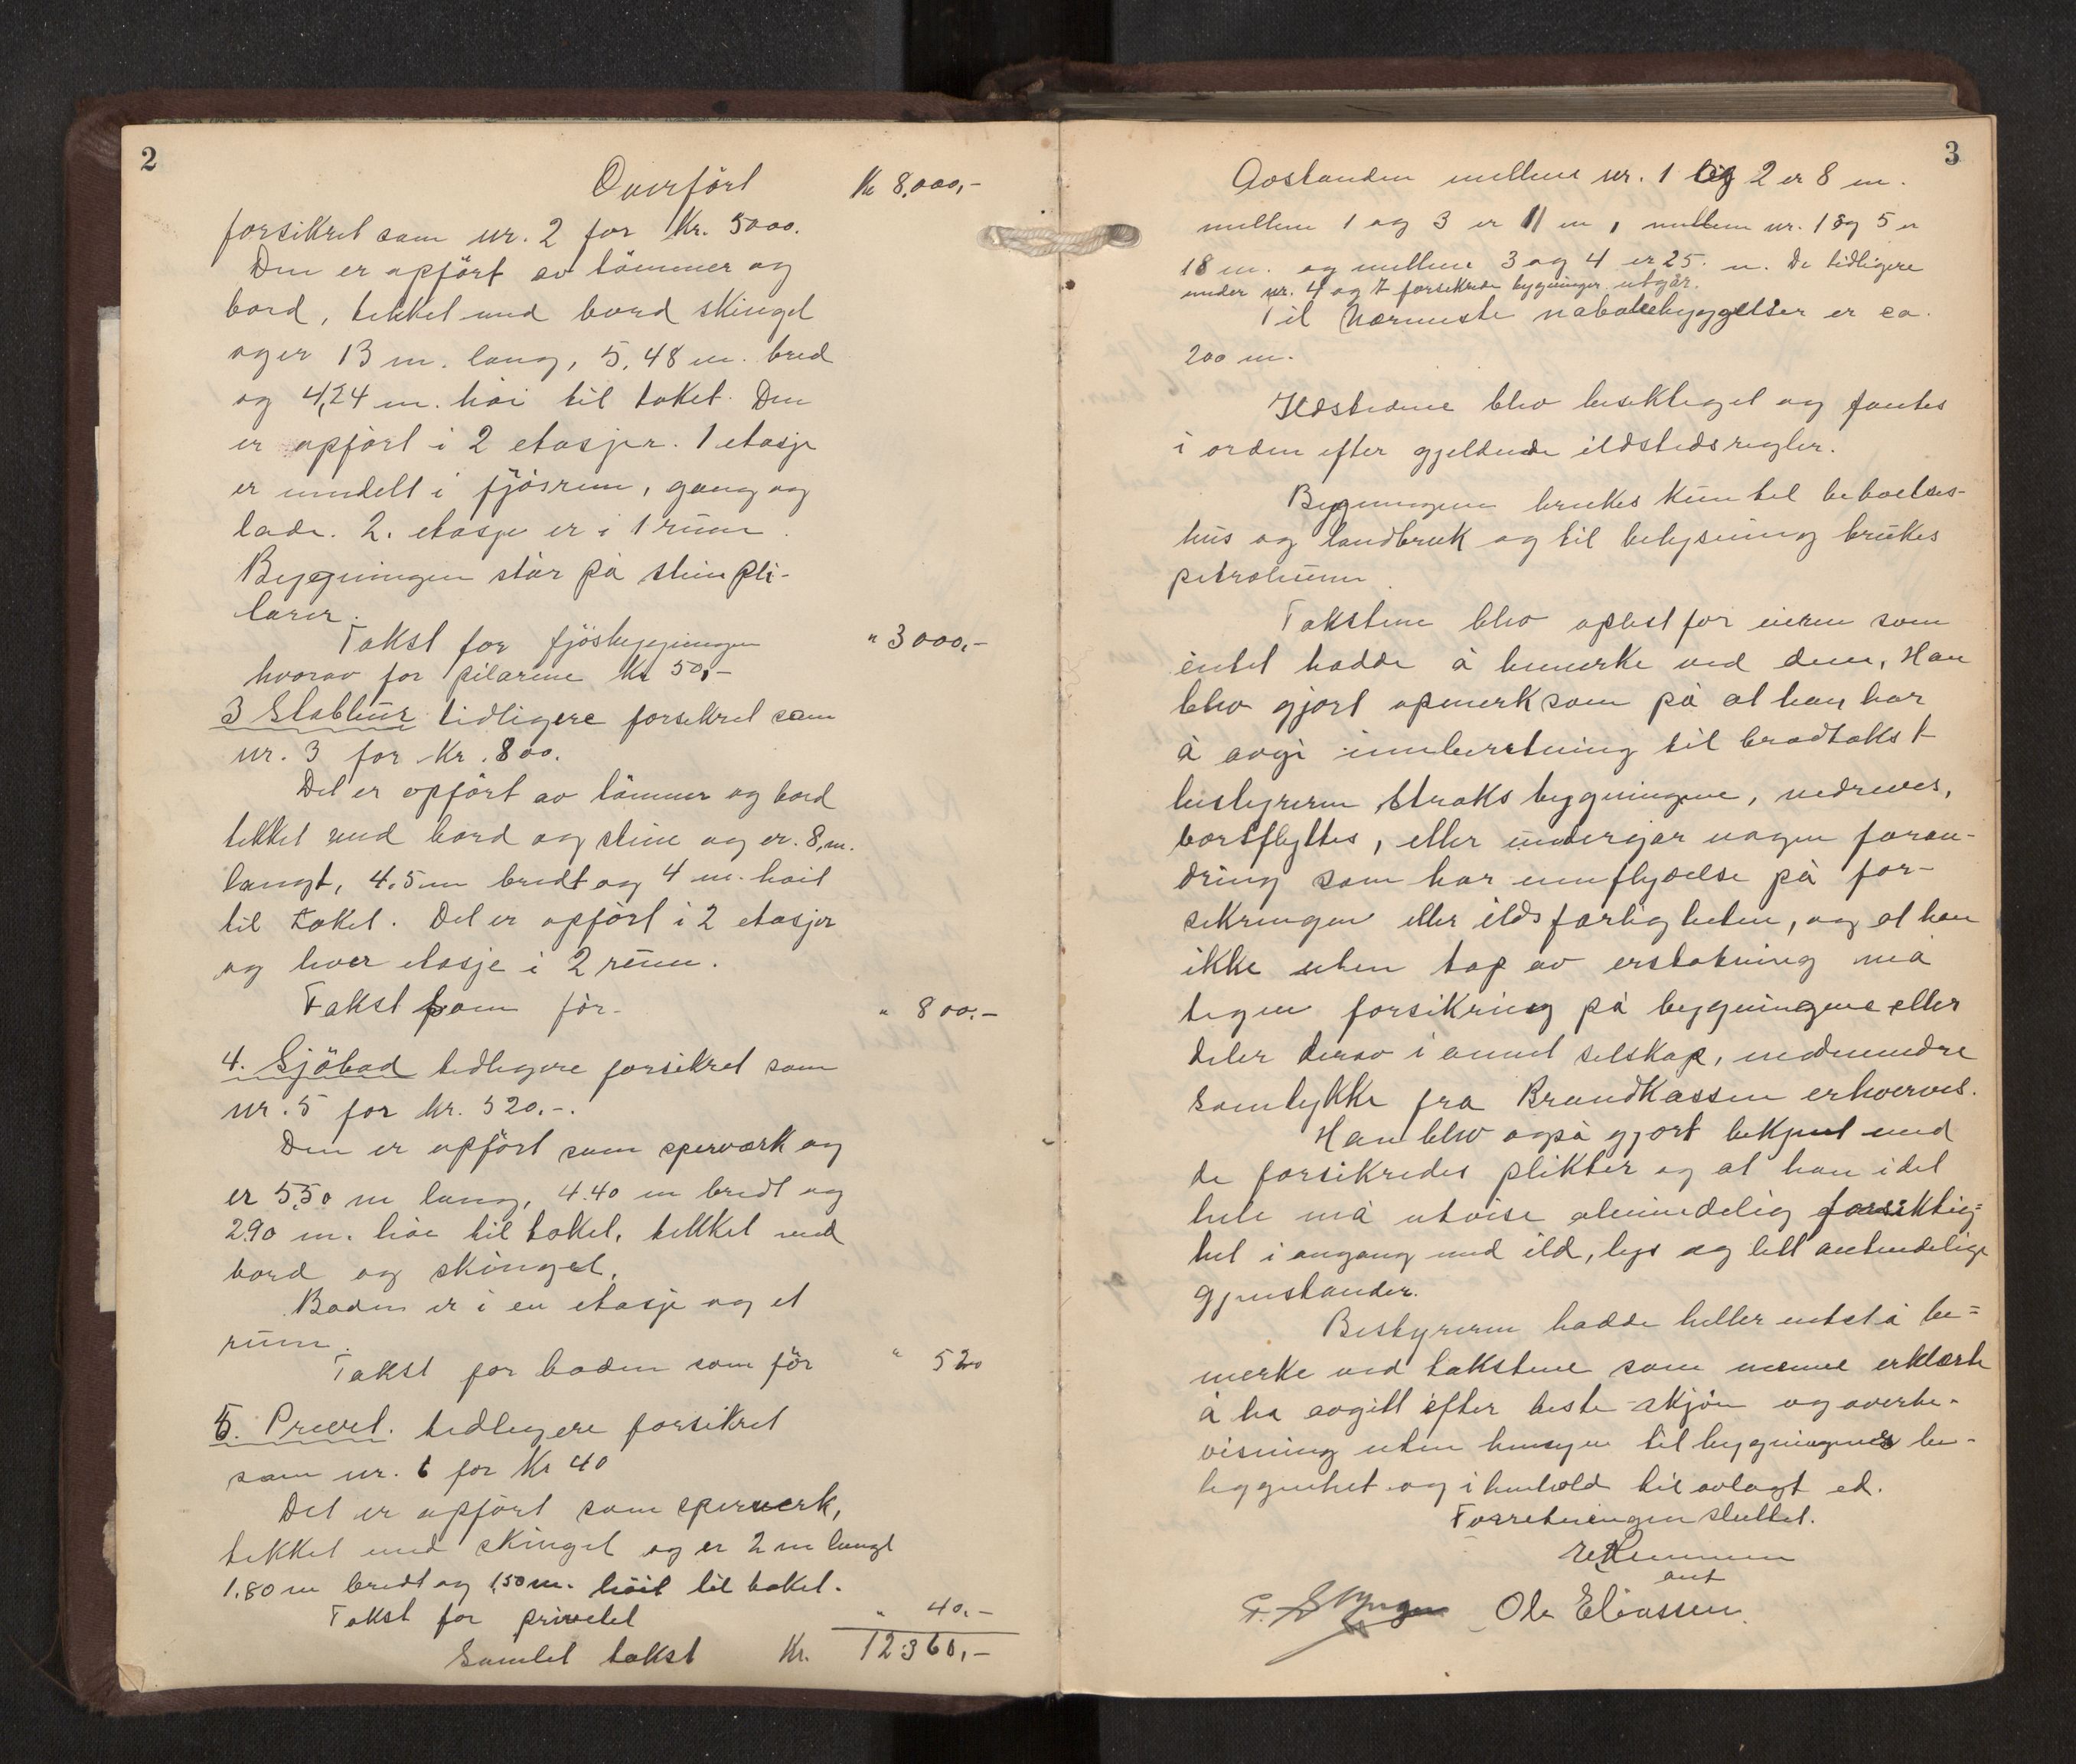 2
Overført Kr 8,000,-
forsikret som nr. 2 for Kr. 5000.
Den er opført av tømmer og
bord, tekket med bord skingel
og er 13 m. lang, 5,48 m. bred
og 4,24 m. høi til taket. Den
er opført i 2 etasjer. 1 etasje
er inndelt i fjøsrum, gang og
lade. 2. etasje er i 1 rum.
Bygningen står på stein pli-
larer.
Takst for fjøsbygningen " 3000,-
hvorav for pilarene Kr 50,-
3 Stabbur tidligere forsikret som
nr. 3 for Kr. 800.
Det er opført av tømmer og bord
tekket med bord og stein og er 8, m.
langt, 4.5 m bredt og 4 m. høit
til taket. Det er opført i 2 etasjer
og hver etasje i 2 rum.
Takst som før- " 800.-
4. Sjøbod tidligere forsikret som
nr. 5 for kr. 520.-.
Den er opført som sperværk og
er 5,50 m lang, 4.40 m bredt og
2.90 m. høi til taket, tekket med
bord og skingel.
Boden er i en etasje og et
rum.
Takst for boden som før " 520
5. Privet. tidligere forsikret
som nr. 6 for Kr 40
Det er opført som sperverk,
tekket med skingel og er 2 m langt
1.80 m bredt og 1,50 m. høit til taket.
Takst for privetet " 40.-
Samlet takst Kr. 12360,-
3
Avstanden mellem nr. 1 og 2 er 8 m.
mellem 1 og 3 er 11 m, mellem nr. 1 og 5 er
18 m. og mellem 3 og 4 er 25. m. De tidligere
under nr. 4 og 7 forsikrede bygninger utgår.
Til nærmeste nabobebyggelser er ca.
200 m.
Ildstedene blev besiktiget og fantes
i orden efter gjeldende ildstedsregler.
Bygningene brukes kun til beboelses-
hus og landbruk og til belysning brukes
petroleum.
Takstene blev oplest for eieren som
intet hadde å bemerke ved dem. Han
blev gjort opmerksom på at han har
å avgi innberetning til brandtakst
bestyreren straks bygningene, nedrives,
bortflyttes, eller undergår nogen foran-
dring som har innflydelse på for-
sikringen eller ildsfarligheten, og at han
ikke uten tap av erstatning må
tegne forsikring på bygningene eller
deler derav i annet selskap, medmindre
samtykke fra Brandkassen erhverves.
Han blev også gjort bekjent med
de forsikredes plikter og at han i det
hele må utvise almindelig forsiktig-
het i omgang med ild, lys og lett antendelige
gjenstander.
Bestyreren hadde heller intet å be-
merke ved takstene som mennene erklærte
å ha avgitt efter beste skjøn og overbe-
visning uten hensyn til bygningenes be-
liggenhet og i henhold til avlagt ed.
Forretningen sluttet.
Ole Eliassen.